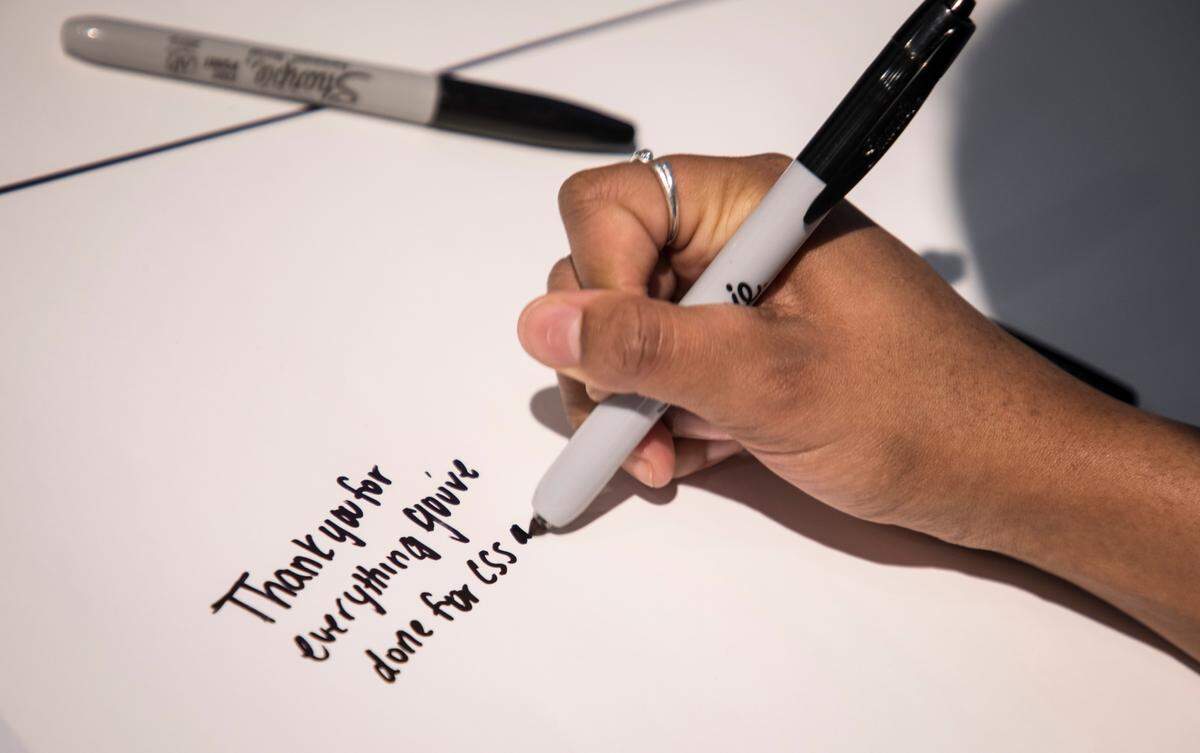 Sharpie
ie
Thank you for
everything you've
done for CSS a